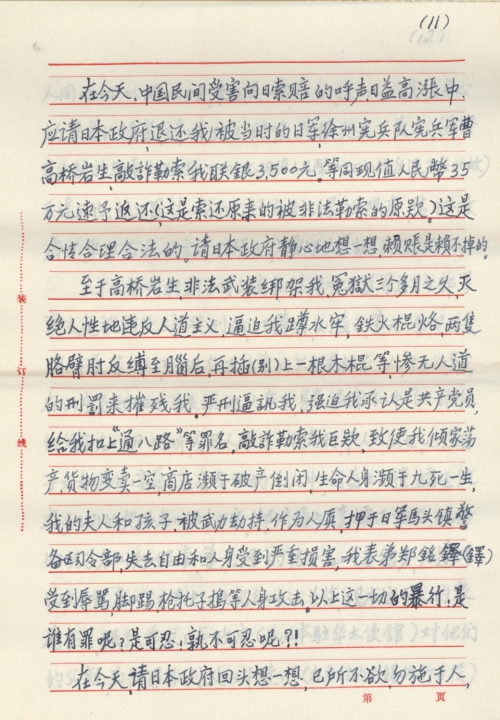 (11)
在今天,中国民间受害向日索赔的呼声日益高漲中,
应请日本政府,退还我被当时的日军徐州宪兵队宪兵軍曹
高桥岩生,敲詐勒索我联銀3,500元。等同现值人民幣35
万元速予返还(这是索还原来的被非法勒索的原欵。)这是
合情合理合法的。请日本政府静心地想一想,赖账是赖不掉的。
至于高桥岩生,非法武装绑架我,冤獄三个多月之久,灭
绝人性地违反人道主义,逼迫我蹲水牢,鉄火棍烙,两隻
胳臂肘反缚至腦后,再插(别)上一根木棍等,惨无人道
的刑罰来摧残我。严刑逼訊我,强迫我承认是共产党员,
给我扣上"通八路"等罪名,敲詐勒索我巨欵,致使我倾家荡
产,货物变卖一空,商店濒于破产倒闭,生命人身濒于九死一生,
我的夫人和孩子,被武力劫持,作为人质,押于日軍馬头镇警
备司令部,失去自由和人身受到严重损害,我表弟郑銘鐸(鐸)
受到辱駡,脚踢枪托子搗等人身攻击。以上这一切的暴行,是
谁有罪呢?是可忍!孰不可忍呢?!
在今天,请日本政府回头想一想,己所不欲,勿施于人,
装
订
线
第 页